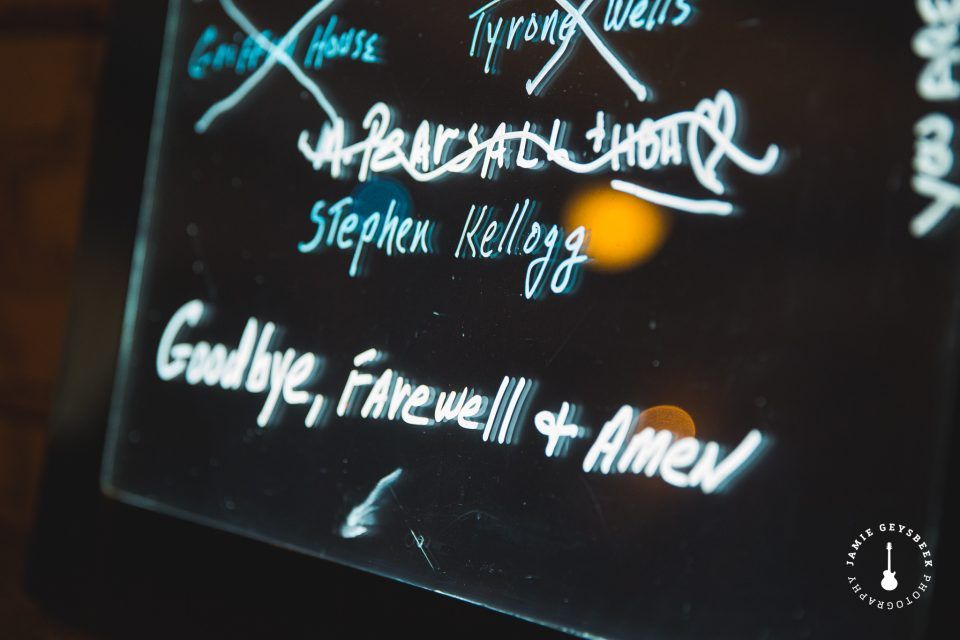 Griffin House
Tyrone Wells
A. PEARSALL + HOA
Stephen Kellogg
Goodbye, Farewell & Amen
YOU ARE
JAMIE GEYSBEEK
PHOTOGRAPHY